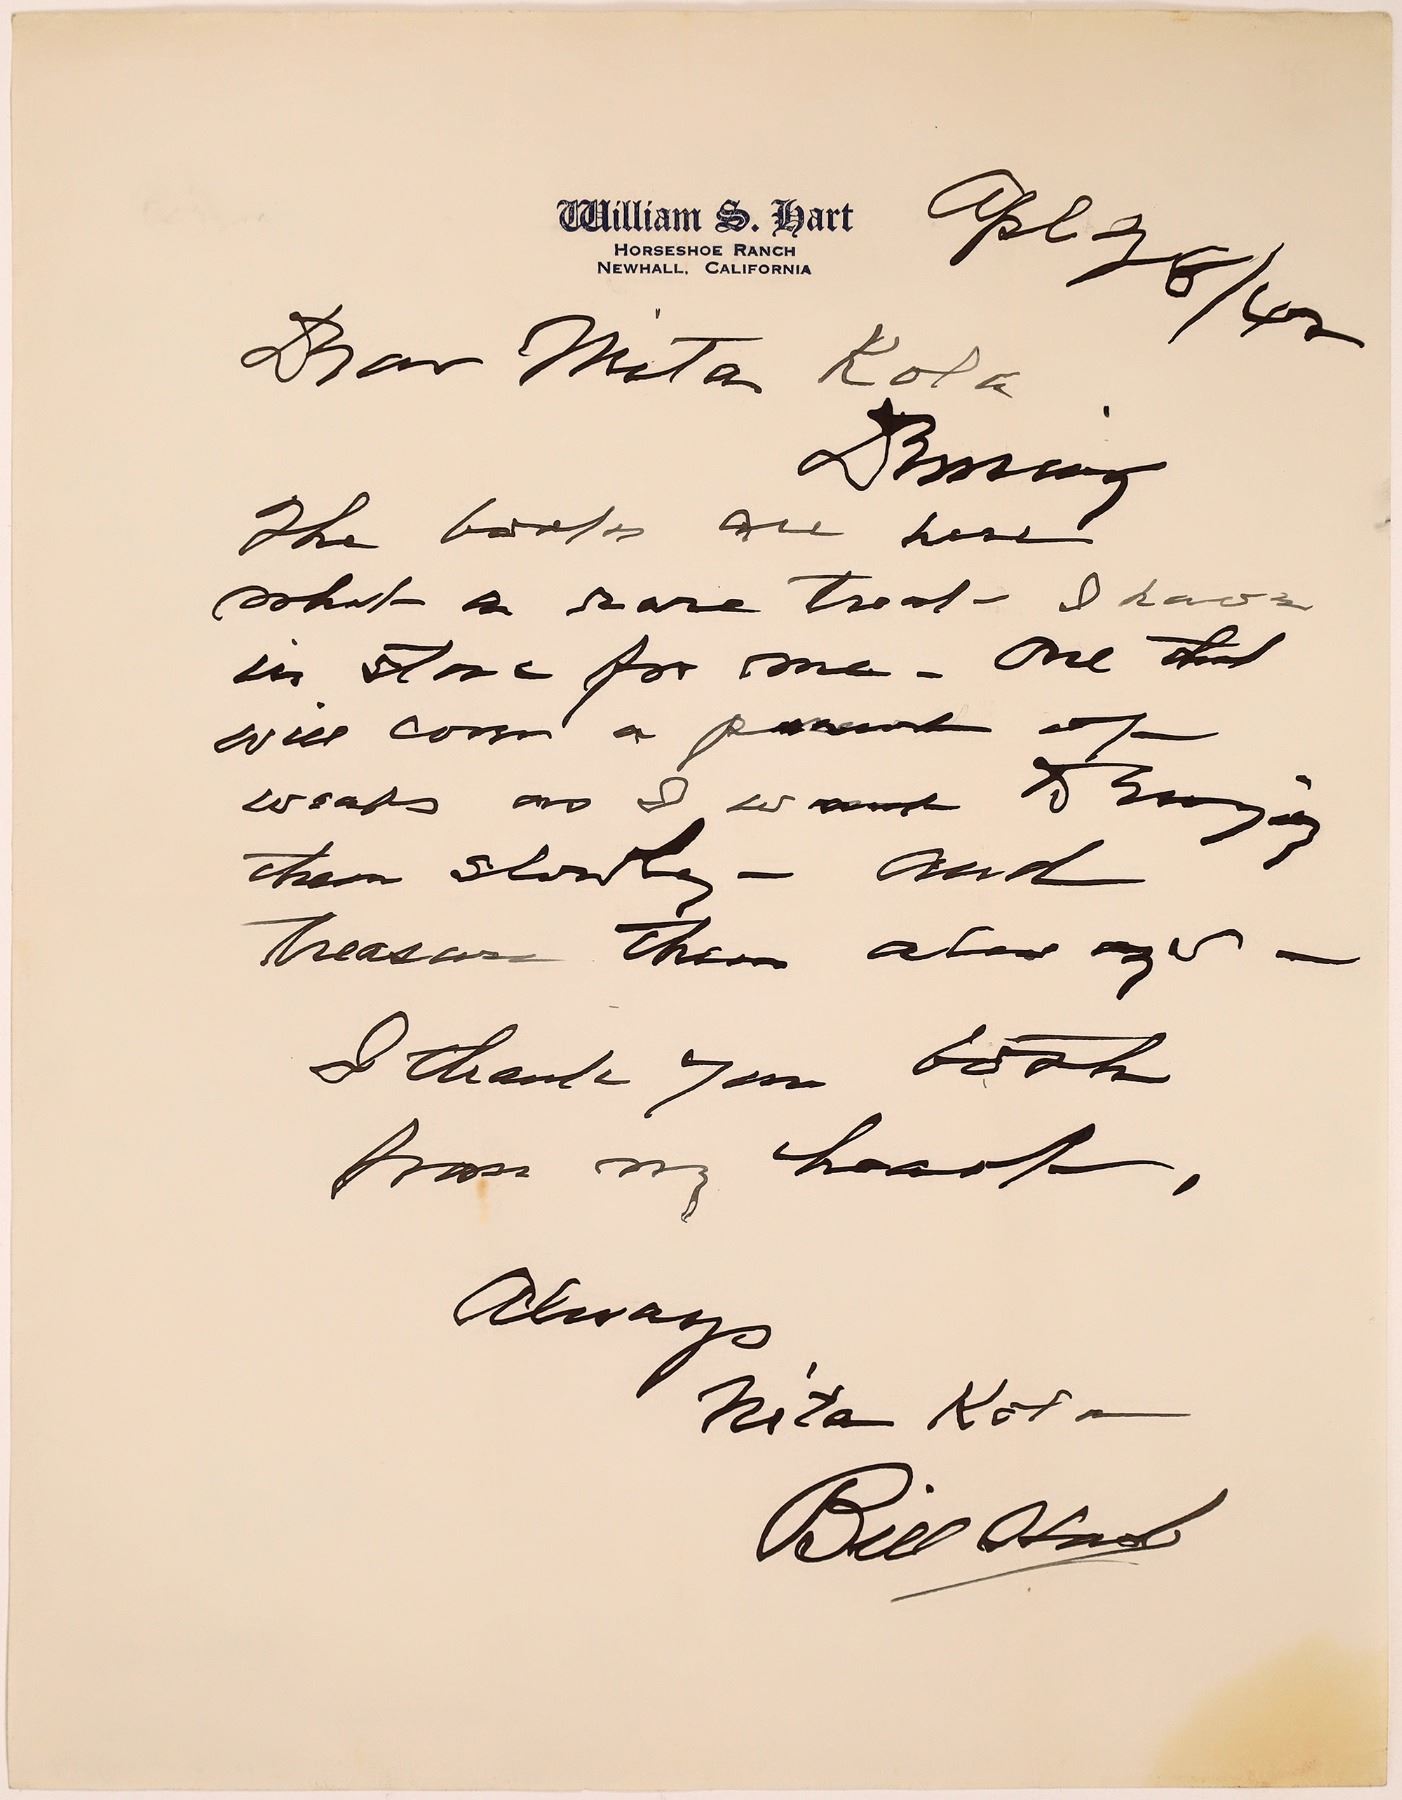 William S. Hart
HORSESHOE RANCH
NEWHALL, CALIFORNIA
Apl 28/42
Dear Nita Kola
The books are here
what a rare treat - I have
in store for me - One that
will cover a period of
weeks as I want to enjoy
them slowly - and
treasure them always -
I thank you both
from my heart,
Always
Nita Kola
Bill Hart